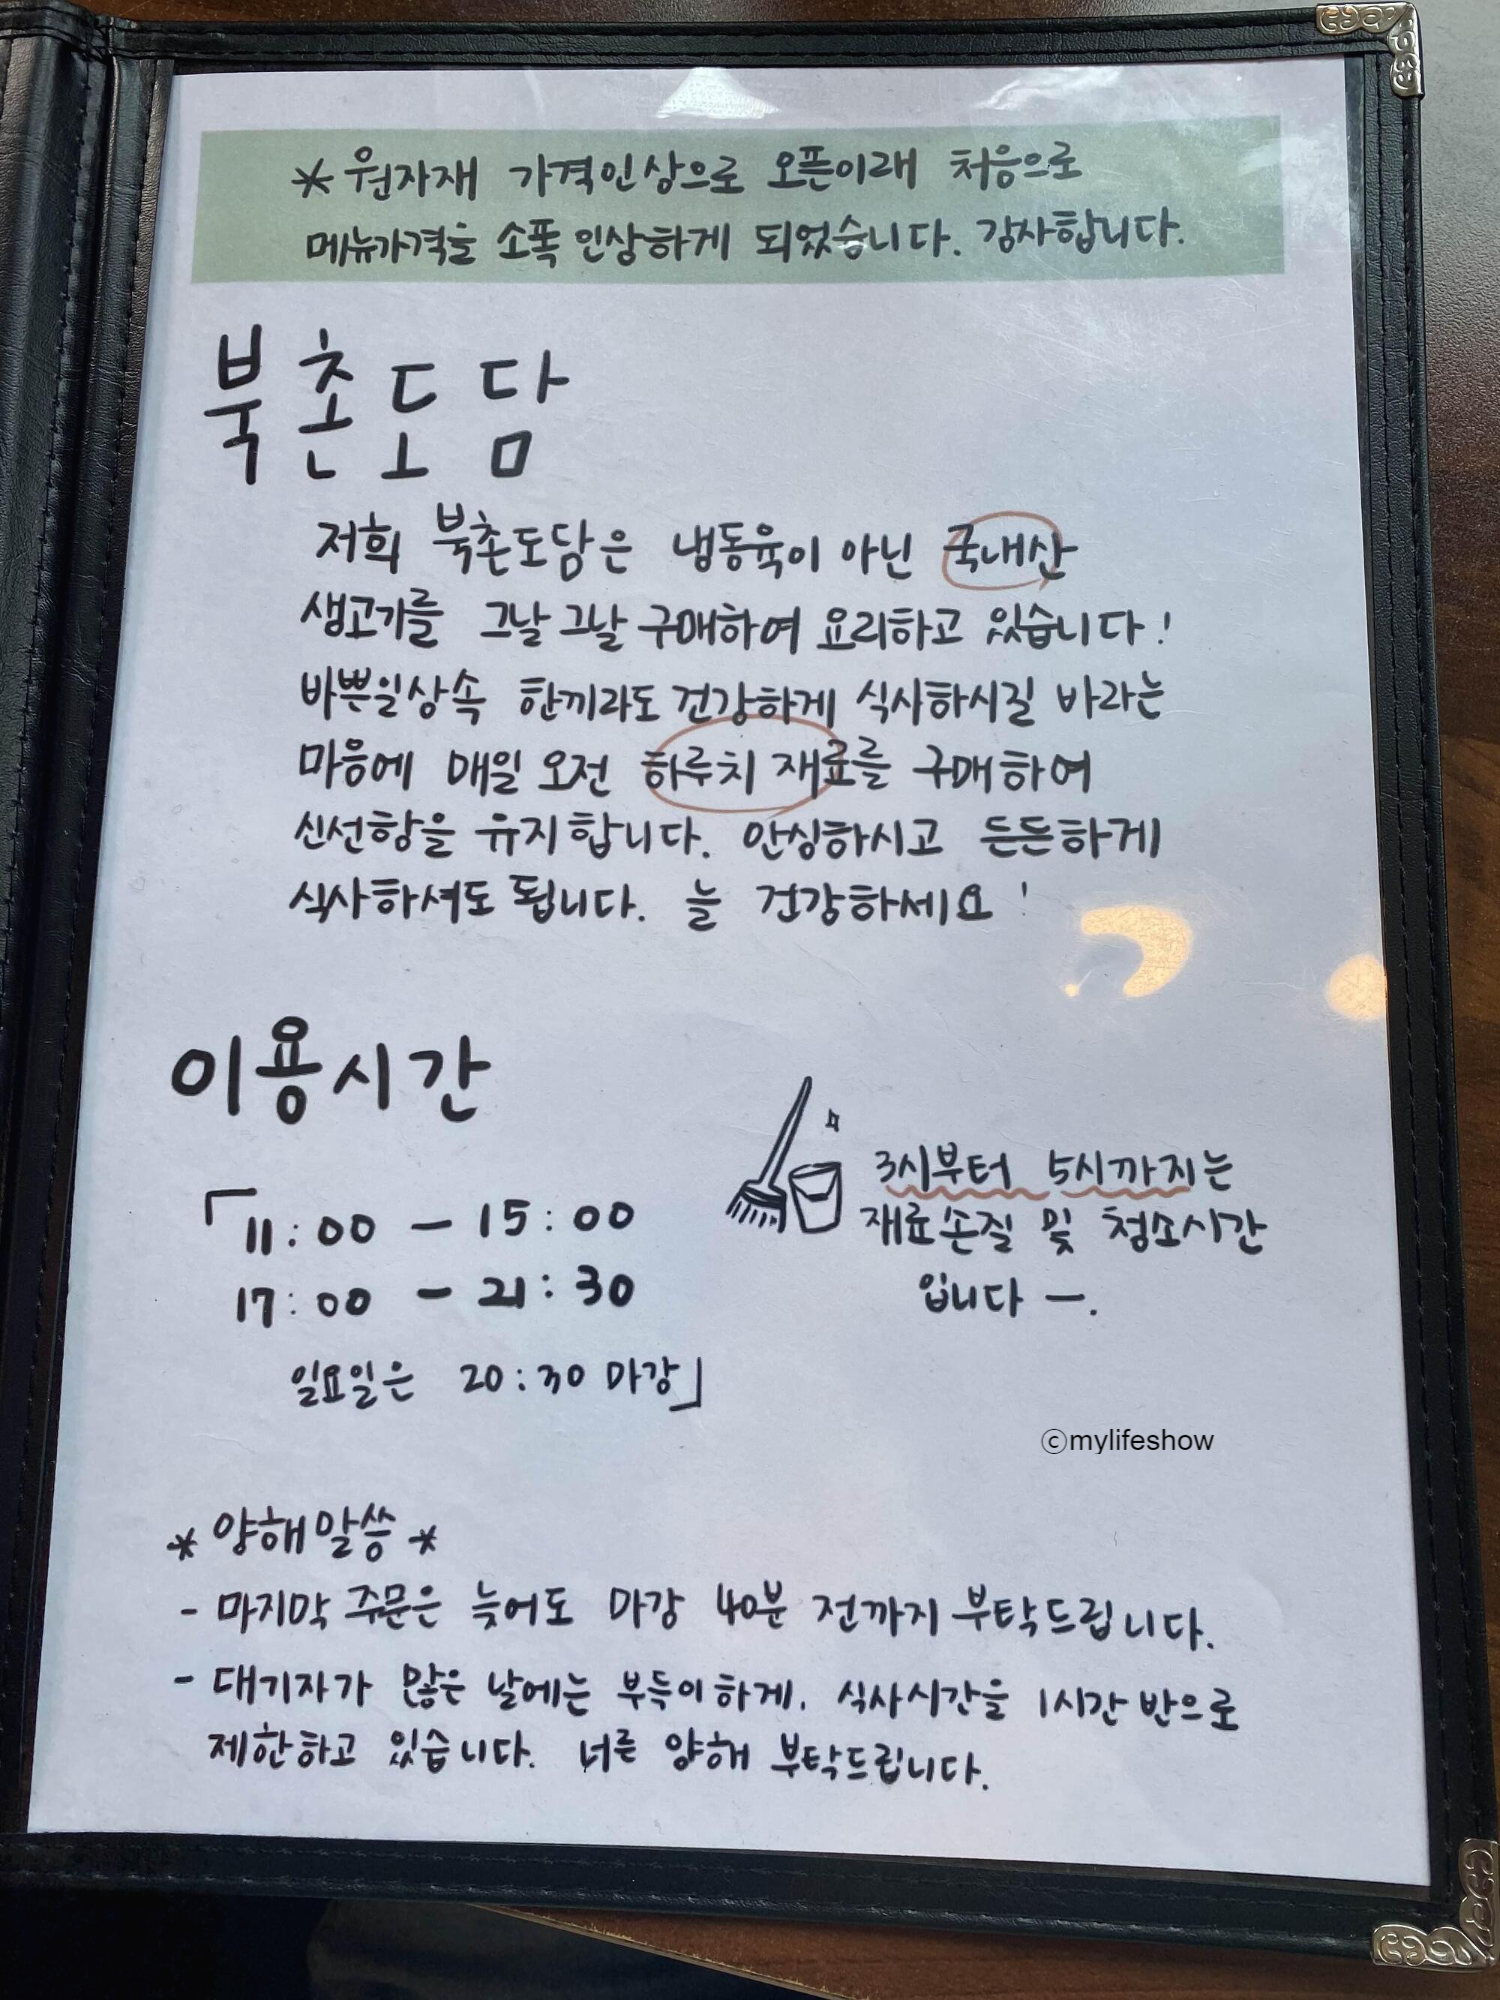 * 원자재 가격인상으로 오픈이래 처음으로
메뉴가격을 소폭 인상하게 되었습니다. 감사합니다.
북촌도담
저희 북촌도담은 냉동육이 아닌 국내산
생고기를 그날 그날 구매하여 요리하고 있습니다!
바쁜일상속 한끼라도 건강하게 식사하시길 바라는
마음에 매일 오전 하루치 재료를 구매하여
신선함을 유지합니다. 안심하시고 든든하게
식사하셔도 됩니다. 늘 건강하세요!
이용시간
「11:00 - 15:00
17:00 - 21:30
일요일은 20:30 마감」
3시부터 5시까지는
재료손질 및 청소시간
입니다 -.
ⓒmylifeshow
* 양해말씀 *
- 마지막 주문은 늦어도 마감 40분 전까지 부탁드립니다.
- 대기자가 많은 날에는 부득이하게. 식사시간을 1시간 반으로
제한하고 있습니다. 너른 양해 부탁드립니다.